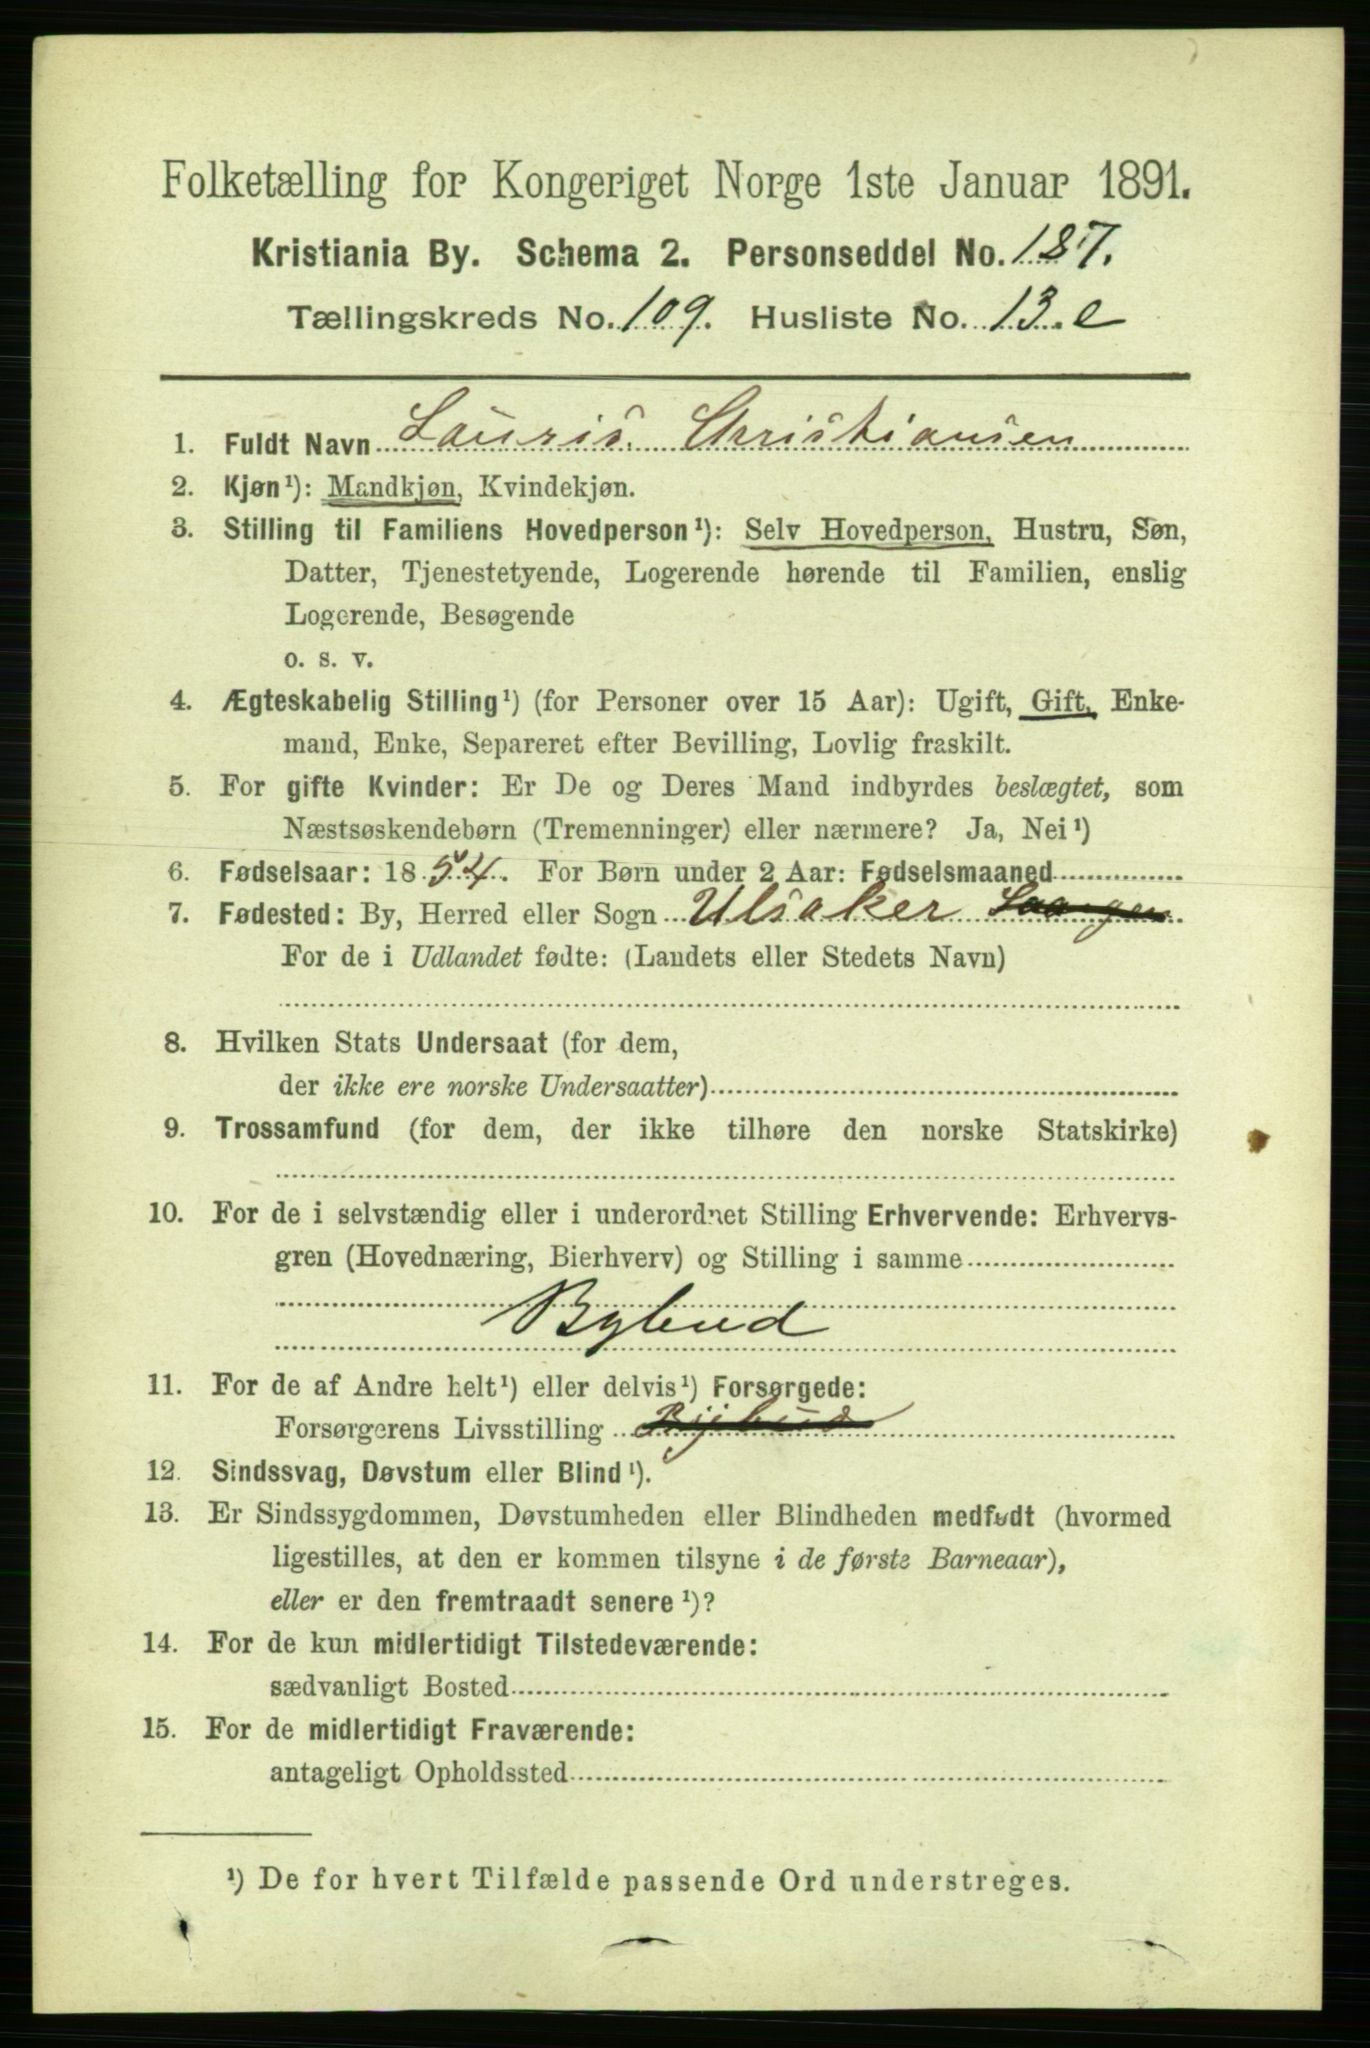 Folketælling for Kongeriget Norge 1ste Januar 1891.
Kristiania By. Schema 2. Personseddel No. 187.
Tællingskreds No. 109. Husliste No. 13. e
1. Fuldt Navn Lauris Christiansen
2. Kjøn¹): Mandkjøn, Kvindekjøn.
3. Stilling til Familiens Hovedperson¹): Selv Hovedperson, Hustru, Søn,
Datter, Tjenestetyende, Logerende hørende til Familien, enslig
Logerende, Besøgende
o. s. v.
4. Ægteskabelig Stilling¹) (for Personer over 15 Aar): Ugift, Gift, Enke-
mand, Enke, Separeret efter Bevilling, Lovlig fraskilt.
5. For gifte Kvinder: Er De og Deres Mand indbyrdes beslægtet, som
Næstsøskendebørn (Tremenninger) eller nærmere? Ja, Nei¹)
6. Fødselsaar: 1854. For Børn under 2 Aar: Fødselsmaaned
7. Fødested: By, Herred eller Sogn Ulsaker
For de i Udlandet fødte: (Landets eller Stedets Navn)
8. Hvilken Stats Undersaat (for dem,
der ikke ere norske Undersaatter)
9. Trossamfund (for dem, der ikke tilhøre den norske Statskirke)
10. For de i selvstændig eller i underordnet Stilling Erhvervende: Erhvervs-
gren (Hovednæring, Bierhverv) og Stilling i samme
Bybud
11. For de af Andre helt¹) eller delvis¹) Forsørgede:
Forsørgerens Livsstilling Bybud
12. Sindssvag, Døvstum eller Blind¹).
13. Er Sindssygdommen, Døvstumheden eller Blindheden medfødt (hvormed
ligestilles, at den er kommen tilsyne i de første Barneaar),
eller er den fremtraadt senere¹)?
14. For de kun midlertidigt Tilstedeværende:
sædvanligt Bosted
15. For de midlertidigt Fraværende:
antageligt Opholdssted
¹) De for hvert Tilfælde passende Ord understreges.